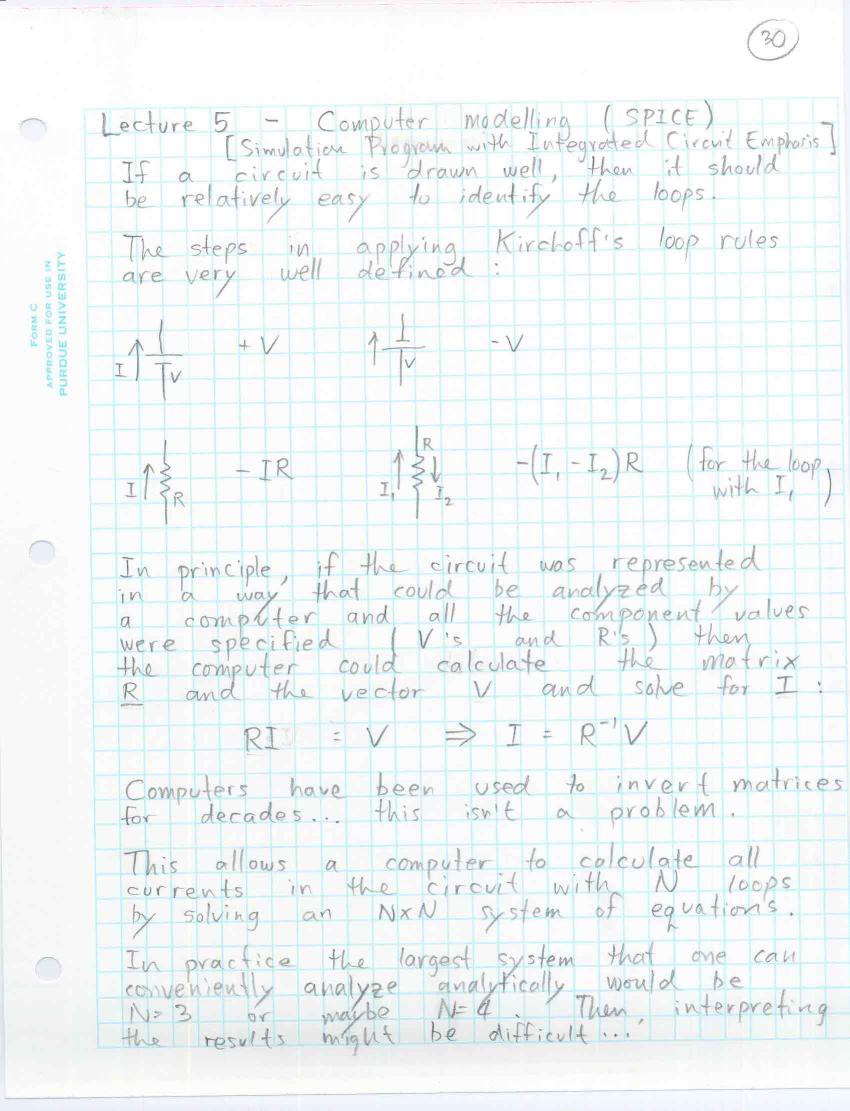 30
Lecture 5 - Computer modelling (SPICE)
[Simulation Program with Integrated Circuit Emphasis]
If a circuit is drawn well, then it should
be relatively easy to identify the loops.
The steps in applying Kirchoff's loop rules
are very well defined:
I V +V V -V
I R -IR I₁ R I₂ -(I₁ - I₂)R (for the loop
with I₁)
In principle, if the circuit was represented
in a way that could be analyzed by
a computer and all the component values
were specified (V's and R's) then
the computer could calculate the matrix
R and the vector V and solve for I:
RI = V ⇒ I = R⁻¹V
Computers have been used to invert matrices
for decades... this isn't a problem.
This allows a computer to calculate all
currents in the circuit with N loops
by solving an N×N system of equations.
In practice the largest system that one can
conveniently analyze analytically would be
N=3 or maybe N=4. Then, interpreting
the results might be difficult...
FORM C
APPROVED FOR USE IN
PURDUE UNIVERSITY